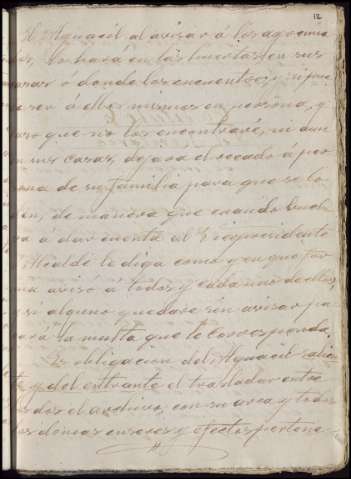 12
El Alguacil al avisar á los agremia
dos, lo hará en las huertas, en sus
casas ó donde los encuentre, y si pue
de ser á ellos mismos en persona, y
caso que no los encontrare, ni aun
en sus casas, dejará el recado á per
sona de su familia para que se lo
den, de manera que cuando vuelva
á dar cuenta al Vicepresidente
Alcalde le diga como y en que for
ma aviso á todos y cada uno de ellos,
y si alguno quedare sin avisar pa
gará la multa que le corresponda.
Es obligacion del Alguacil salien
te y del entrante el trasladar entre
los dos el archivo, con su arca y todos
los demas enseres y efectos pertene-